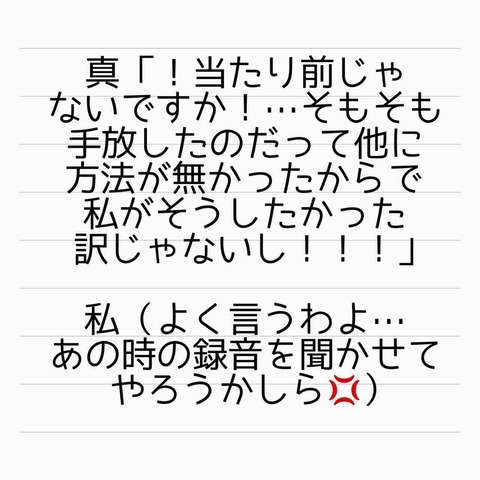 真「！当たり前じゃ
ないですか！…そもそも
手放したのだって他に
方法が無かったからで
私がそうしたかった
訳じゃないし！！！」
私（よく言うわよ…
あの時の録音を聞かせて
やろうかしら💢）